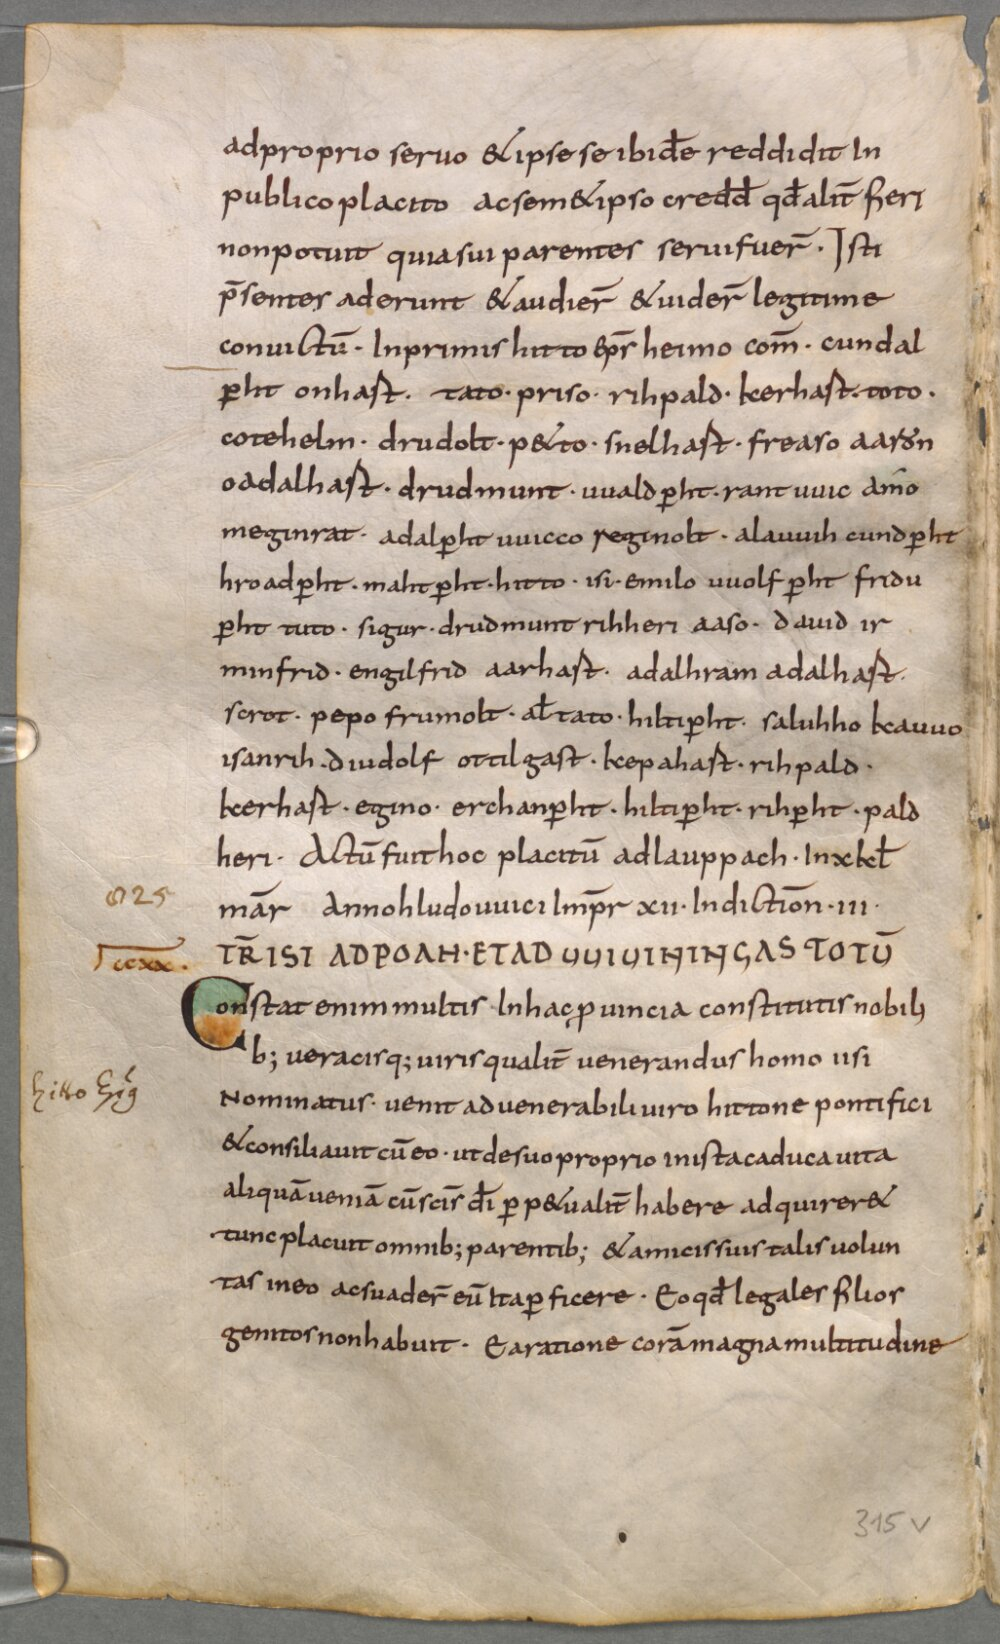 adproprio seruo &ipse se ibidē reddidit In
publico placito acsem&ipso credd̄ qd̄alit̄ fieri
nonpotuit quia sui parentes serui fuer̄ · Isti
p̄sentes aderunt &audier̄ &uider̄ legitime
conuictū · Inprimis hitto ep̄s heimo com̄ · cundal
p̱ht onhast · tato · priso · rihpald · kerhast · toto ·
cotehelm · drudolt · p&to · snelhast · freaso aarōn
oadalhast · drudmunt · uualdp̱ht · rantuuic amo
meginrat · adalp̱ht uuicco reginolt · alauuih cundp̱ht
hroadp̱ht · mahtp̱ht · hitto · isi · emilo uuolfp̱ht fridu
p̱ht tuto · sigur · drudmunt rihheri aaso · dauid ir
minfrid · engilfrid aarhast · adalhram adalhast ·
scrot · pepo frumolt · al̄ tato · hiltip̱ht · saluhho keauuo
isanrih · diudolf ottilgast · kepahast · rihpald ·
kerhast · egino · erchanp̱ht · hiltip̱ht · rihp̱ht · pald
heri · Actū fuit hoc placitū adlauppach · Inxkl̄
mār Anno hludouuici Imp̄r xii · Indictiōn · iii ·
825
TR̄ ISI AD POAH · ET AD UUIUININGAS TOTŪ
ccxx ·
Constat enim multis · Inhac ꝓuincia constitutis nobili
b; ueracisq; uiris qualit̄ uenerandus homo isi
Nominatus · uenit aduenerabili uiro hittone pontifici
hitto
&consiliauit cū eo · ut desuo proprio inista caduca uita
aliquā ueniā cū scīs dī p̱p&ualit̄ habere adquirer&
tunc placuit omnib; parentib; &amicis suis talis uolun
tas ineo acsuader̄ eū Ita p̱ficere · Eo qd̄ legales filios
genitos nonhabuit · Ea ratione corā magna multitudine
315 v